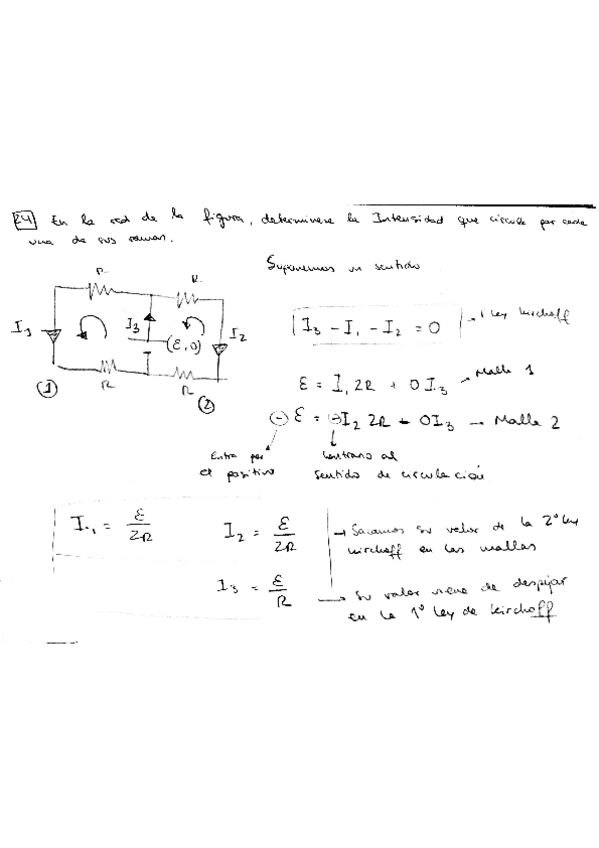 24 En la red de la figura, determinese la Intensidad que circula por cada
una de sus ramas.
Suponemos un sentido
R
R
I3
I3
(ε,0)
I2
R
R
1
2
I3 - I1 - I2 = 0 → 1 Ley Kirchoff
ε = I1 2R + 0I3 → Malla 1
- ε = -I2 2R - 0I3 → Malla 2
Entra por
el positivo
Contrario al
sentido de circulación
I1 = ε/2R
I2 = ε/2R
→ Sacamos su valor de la 2º Ley
Kirchoff en las mallas
I3 = ε/R
→ Su valor viene de despejar
en la 1º Ley de Kirchoff